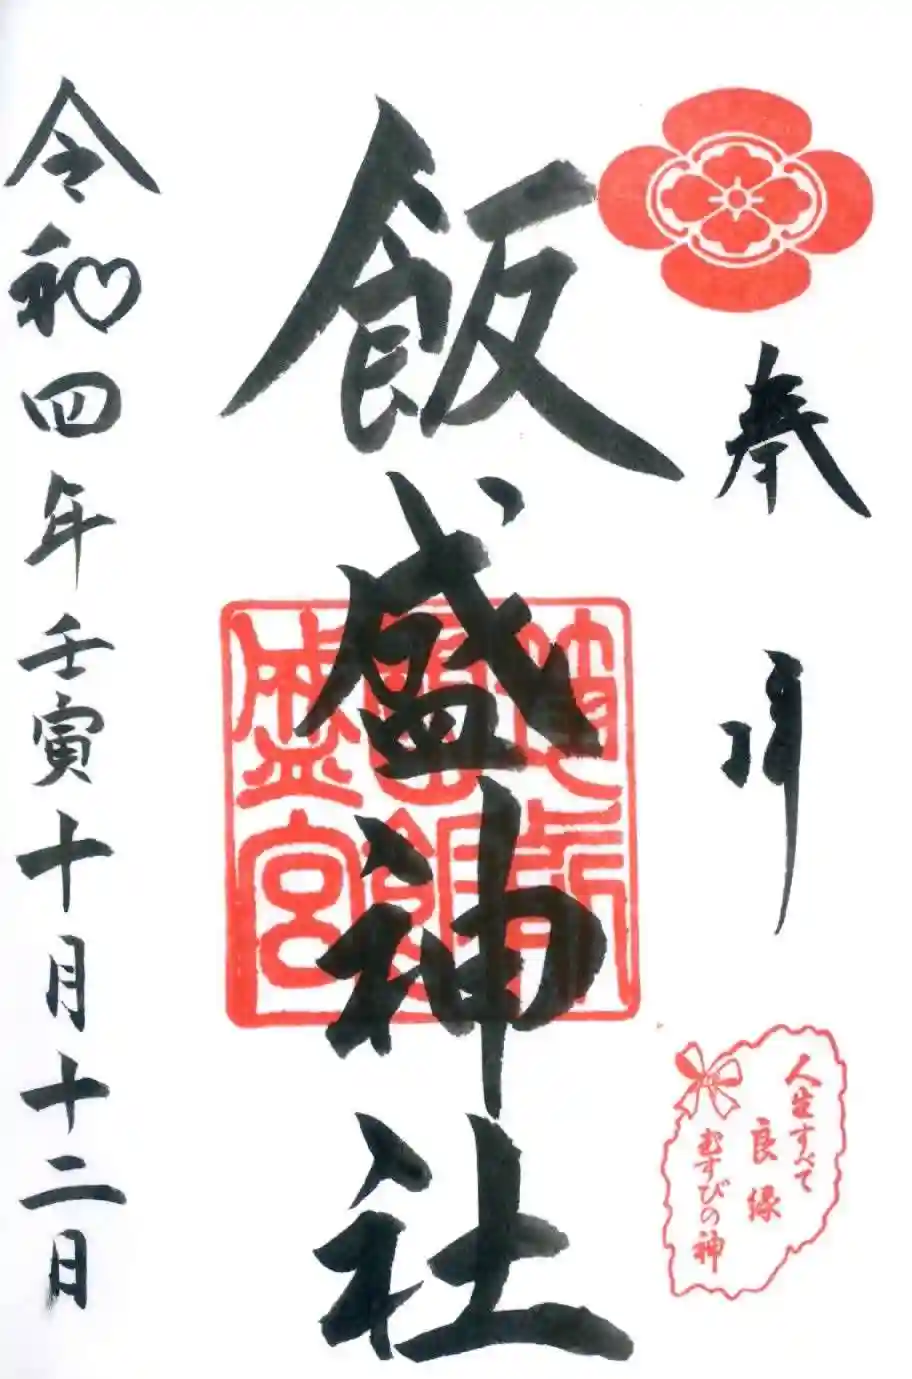 奉拝
飯盛神社
人生すべて
良縁
むすびの神
令和四年壬寅十月十二日